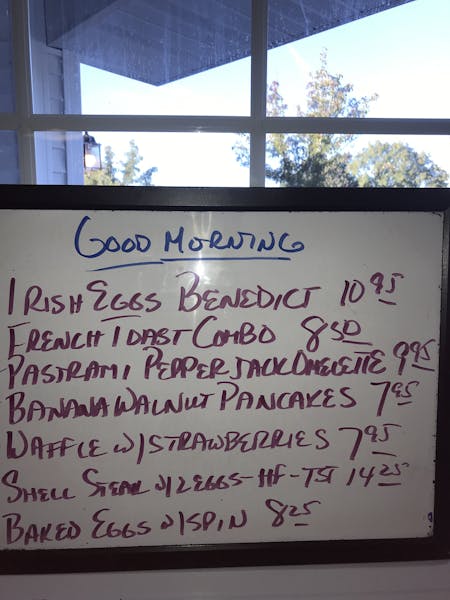 GOOD MORNING
IRISH EGGS BENEDICT 10 95
FRENCH TOAST COMBO 8 50
PASTRAMI PEPPER JACK OMELETTE 9 95
BANANA WALNUT PANCAKES 7 95
WAFFLE W/STRAWBERRIES 7 95
SHELL STEAK W/2 EGGS-HF-TST 14 25
BAKED EGGS W/SPIN 8 25